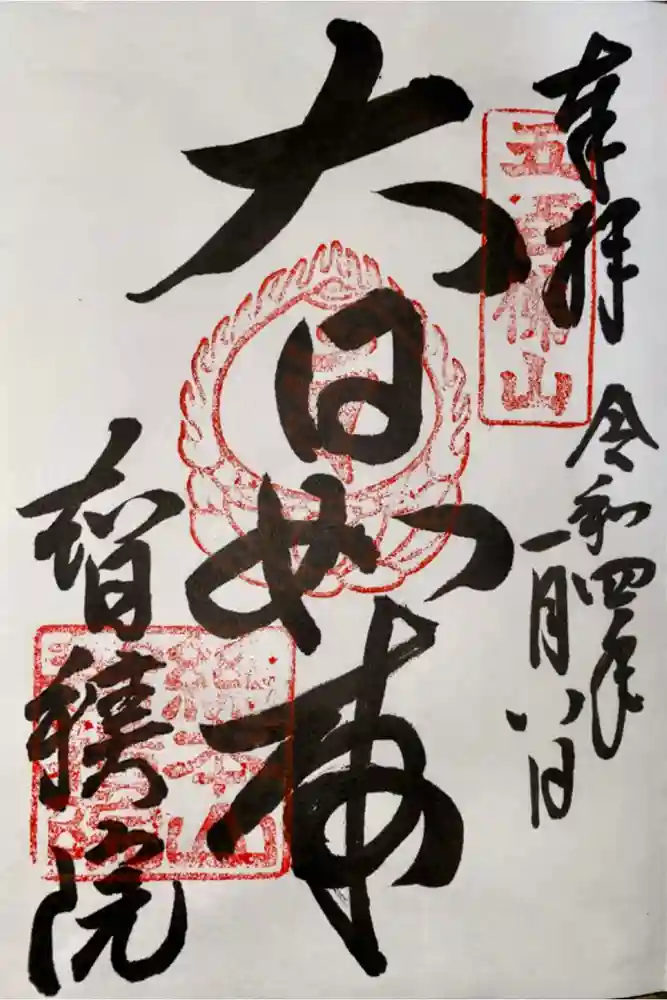 奉拝
五百佛山
令和四年
一月八日
大日如来
智積院